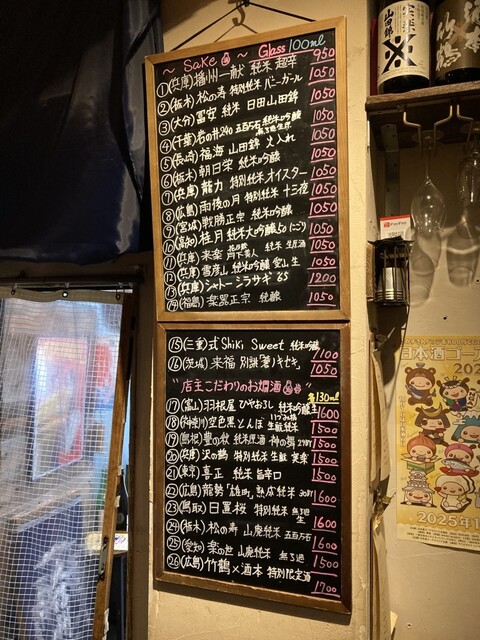 ~ Sake ~ Glass 100ml
①(兵庫) 播州一献 純米 超辛 950
②(栃木) 松の寿 特別純米 バニーガール 1050
③(大分) 冨安 純米 日田山田錦 1050
④(千葉) 岩の井240 五百万石 純米吟醸 1050
⑤(長崎) 福海 山田錦 火入れ 1050
⑥(栃木) 朝日栄 純米吟醸 1050
⑦(兵庫) 龍力 特別純米 オイスター 1050
⑧(広島) 雨後の月 特別純米 十三夜 1050
⑨(宮城) 戦勝正宗 純米吟醸 1050
⑩(高知) 桂月 純米大吟醸50 にごり 1050
⑪(兵庫) 来楽 純米 生原酒 1050
⑫(兵庫) 雪彦山 純米吟醸 愛山 生 1050
⑬(兵庫) シャトーシラサギ '65 1200
⑭(福島) 楽器正宗 1050
⑮(三重) 式 Shiki Sweet 純米吟醸 1100
⑯(茨城) 来福 別誂「箸ノキセキ」 1050
"店主こだわりのお燗酒" 各130ml
⑰(富山) 羽根屋 ひやおろし 純米吟醸 生 1600
⑱(神奈川) 空色黒とんぼ 生酛純米 1500
⑲(島根) 豊の秋 純米原酒 神の舞 1500
⑳(兵庫) 沢の鶴 特別純米 生酛 実楽 1500
㉑(東京) 喜正 純米 旨辛口 1500
㉒(広島) 龍勢 "雄町" 熟成純米 1600
㉓(鳥取) 日置桜 特別純米 生 1600
㉔(栃木) 松の寿 山廃純米 五百万石 1600
㉕(愛知) 楽の世 山廃純米 無ろ過 1500
㉖(広島) 竹鶴×酒本 特別限定酒 1700
山田錦
竹鶴
PayPay
日本酒ゴー
202
2025年1